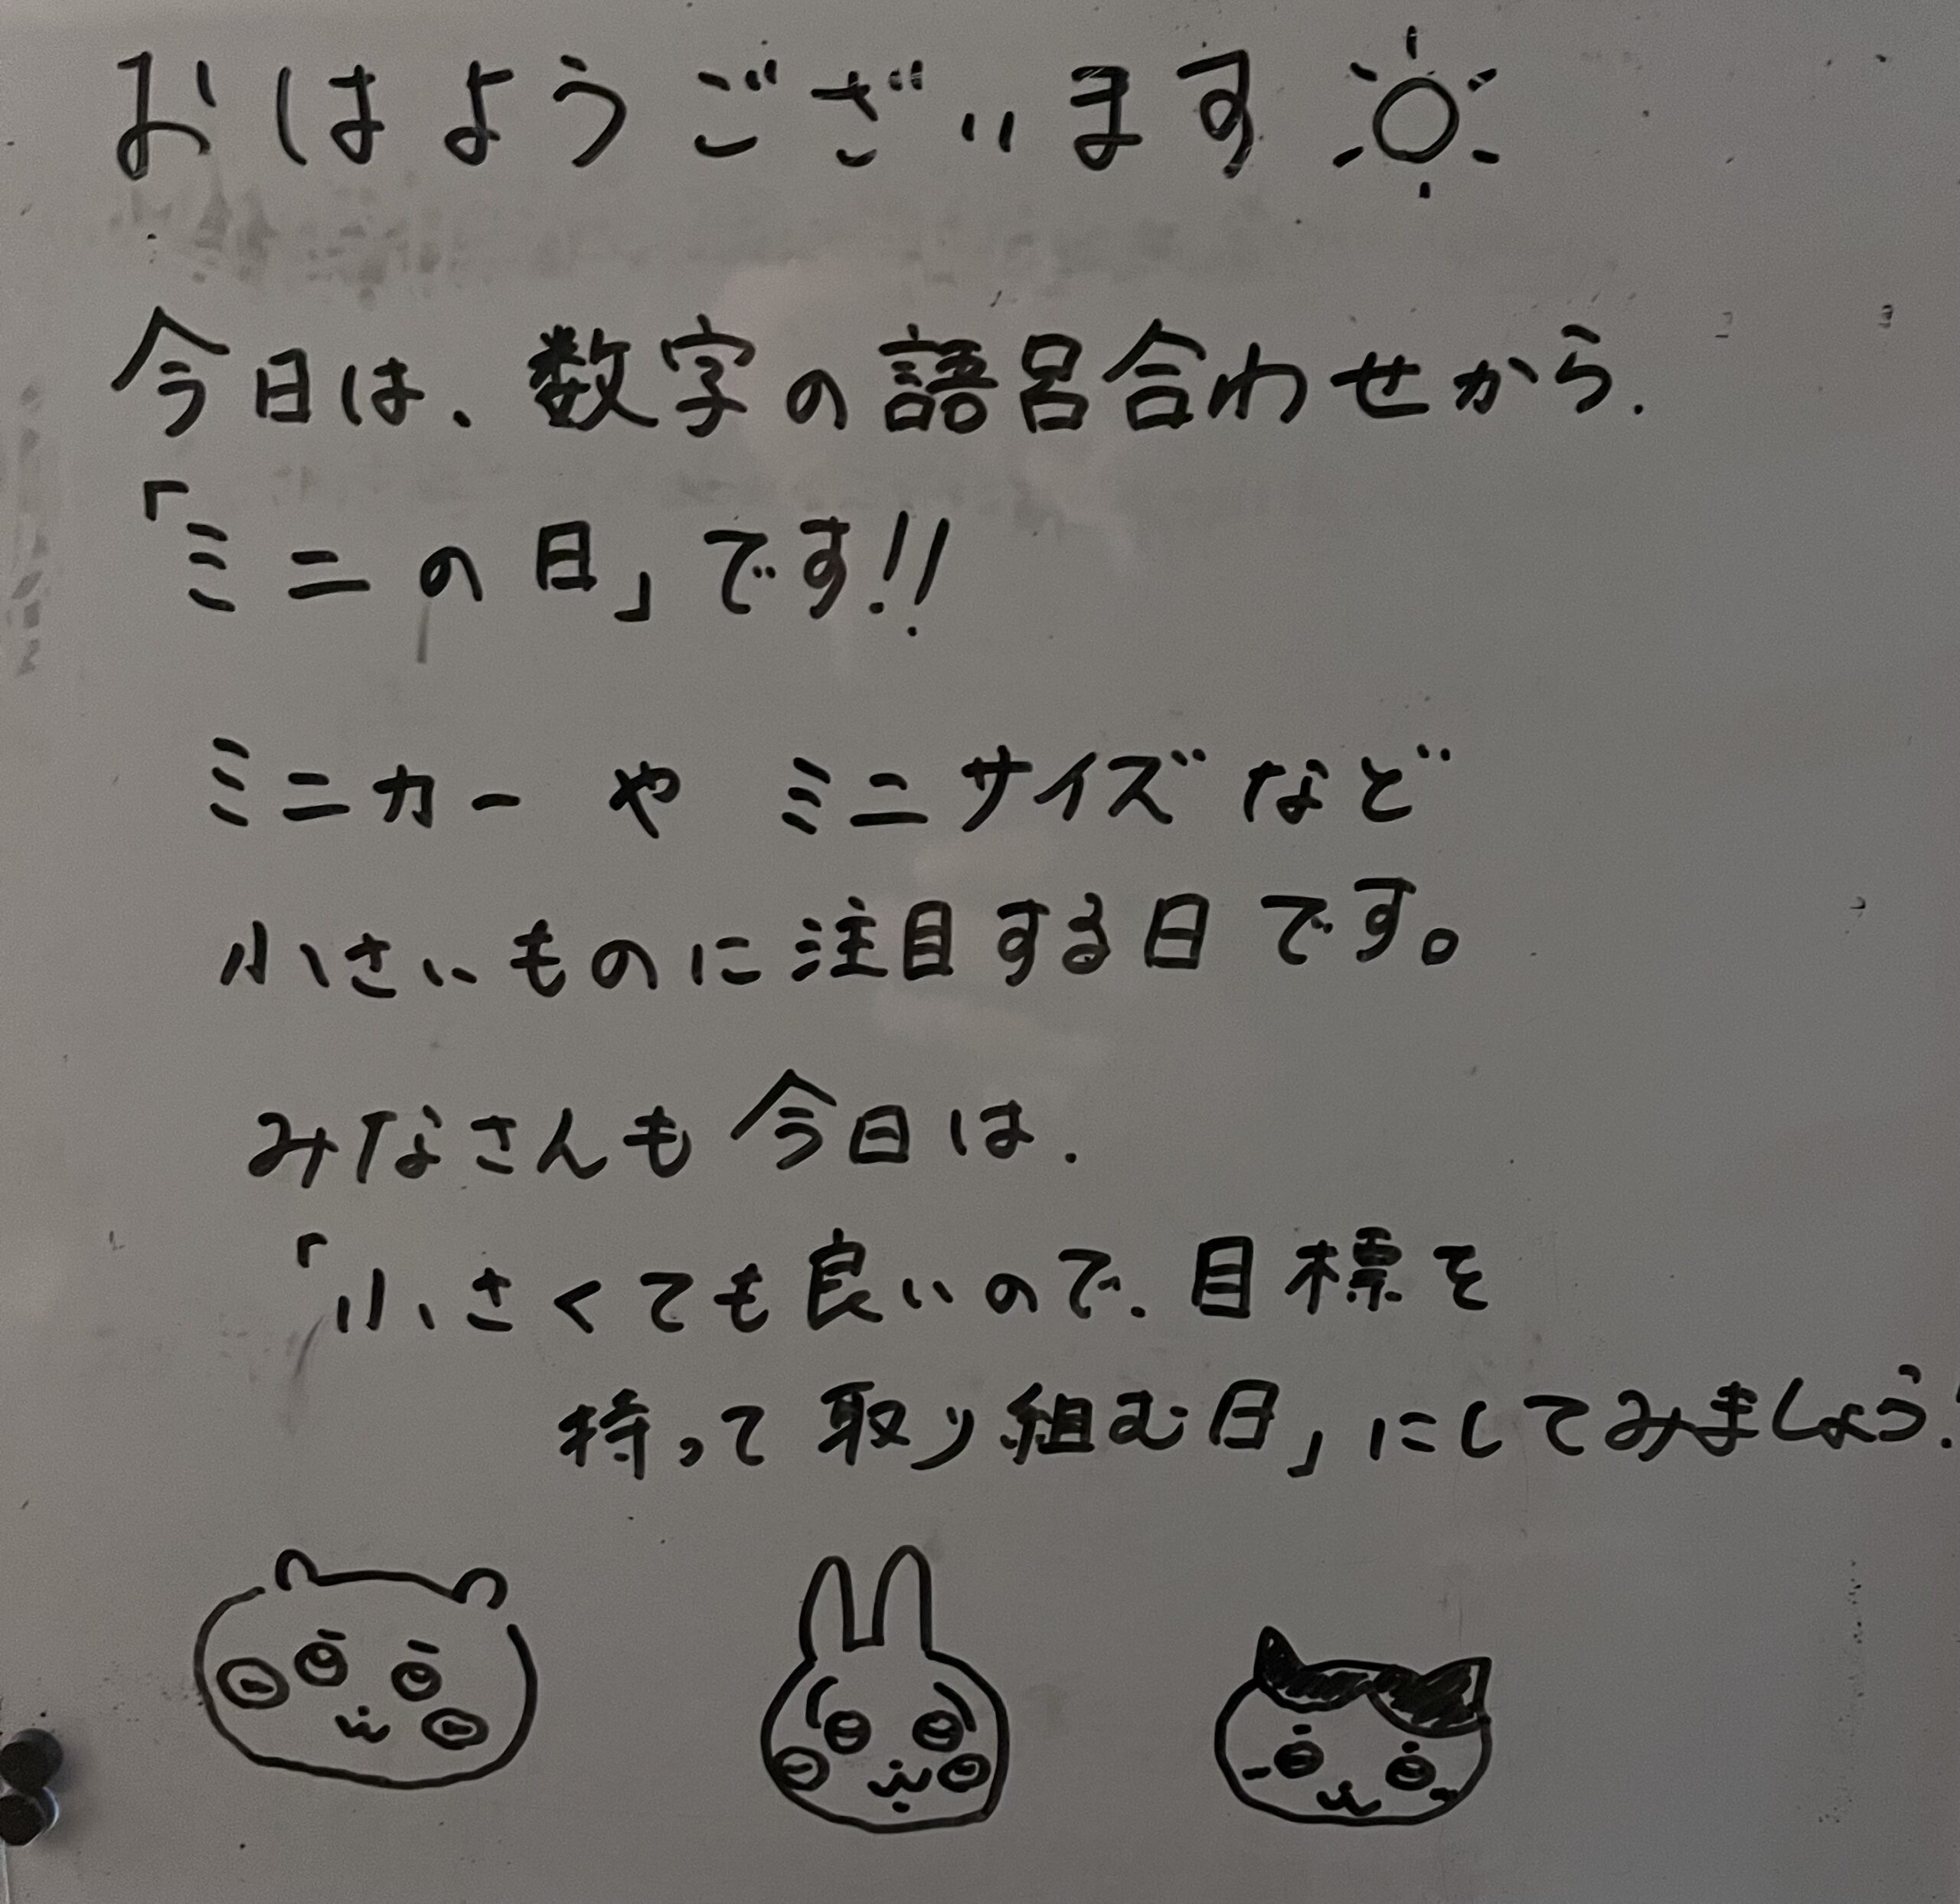 おはようございます
今日は、数字の語呂合わせから、
「ミニの日」です!!
ミニカーや ミニサイズなど
小さいものに注目する日です。
みなさんも今日は、
「小さくても良いので、目標を
持って取り組む日」にしてみましょう!